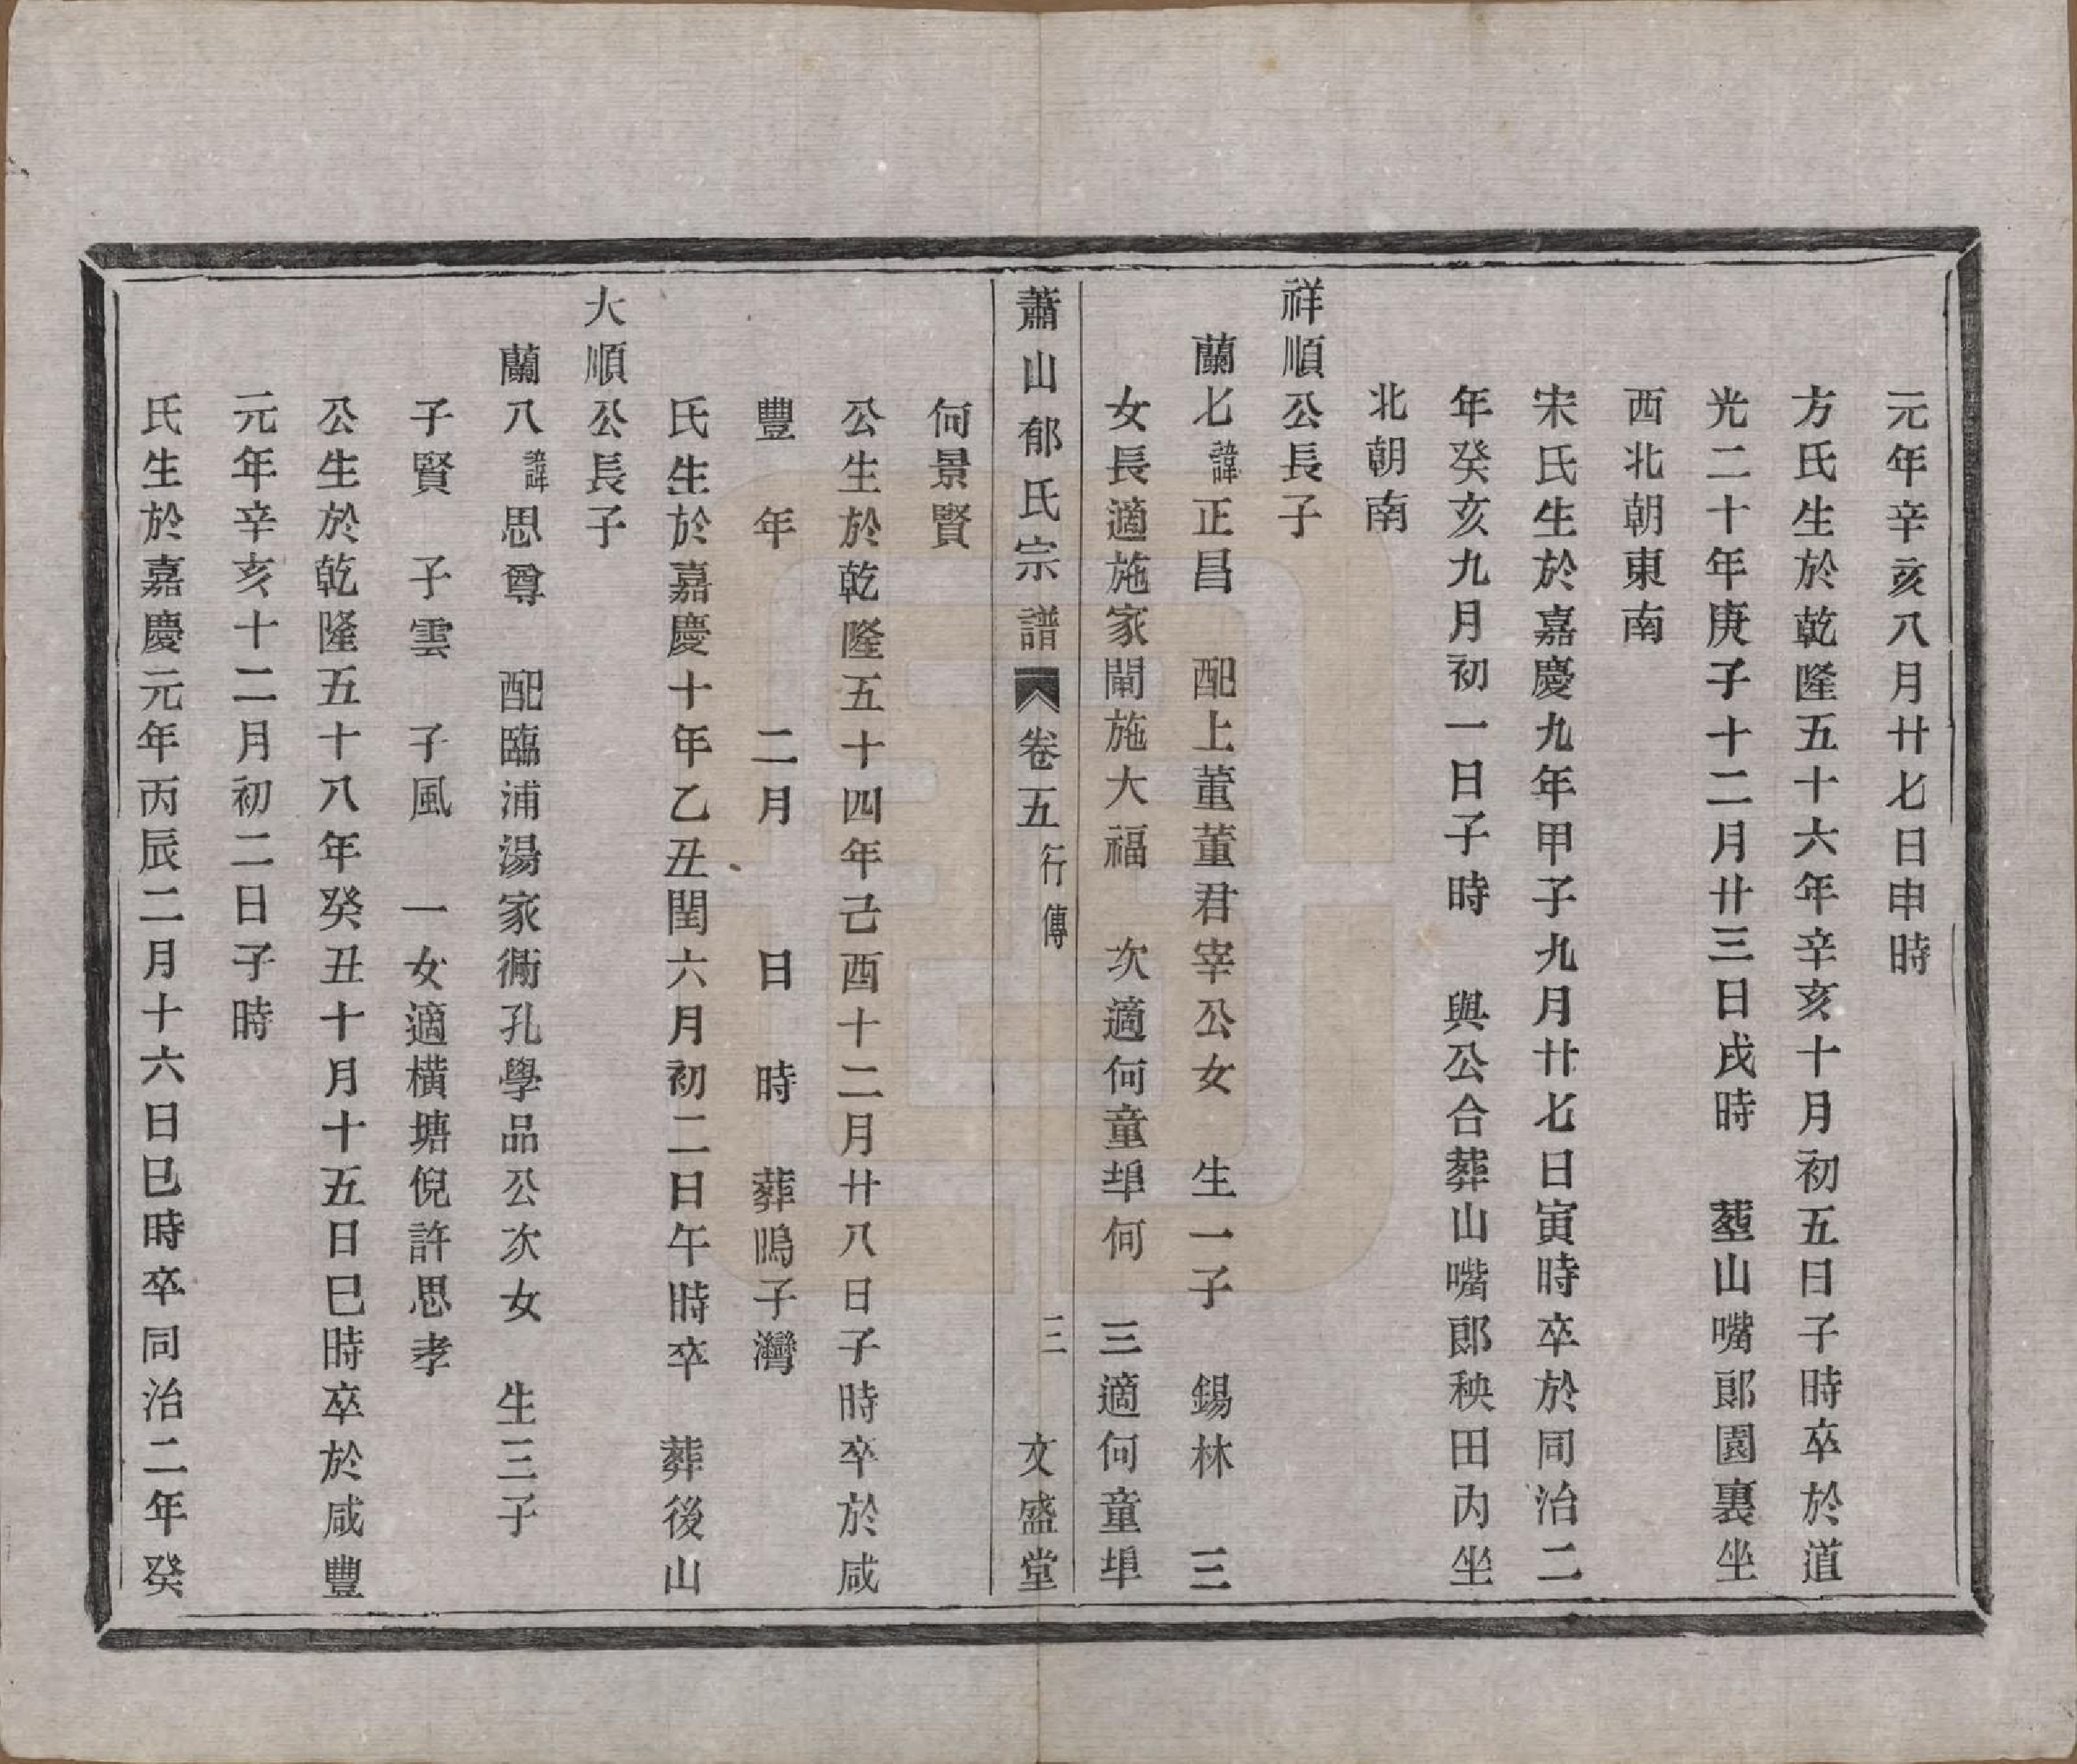 元年辛亥八月廿七日申時
方氏生於乾隆五十六年辛亥十月初五日子時卒於道
光二十年庚子十二月廿三日戌時　塟山嘴郎園裏坐
西北朝東南
宋氏生於嘉慶九年甲子九月廿七日寅時卒於同治二
年癸亥九月初一日子時　與公合葬山嘴郎秧田內坐
北朝南
祥順公長子
蘭七諱正昌　配上董董君宰公女　生一子　錫林　三
女長適施家閘施大福　次適何童埠何　三適何童埠
蕭山郁氏宗譜　卷五　行傳　三　文盛堂
何景賢
公生於乾隆五十四年己酉十二月廿八日子時卒於咸
豐　年　　二月　　日　時　葬鴫子灣
氏生於嘉慶十年乙丑閏六月初二日午時卒　葬後山
大順公長子
蘭八諱思尊　配臨浦湯家衕孔學品公次女　生三子
子賢　子雲　子風　一女適橫塘倪許思孝
公生於乾隆五十八年癸丑十月十五日巳時卒於咸豐
元年辛亥十二月初二日子時
氏生於嘉慶元年丙辰二月十六日巳時卒同治二年癸